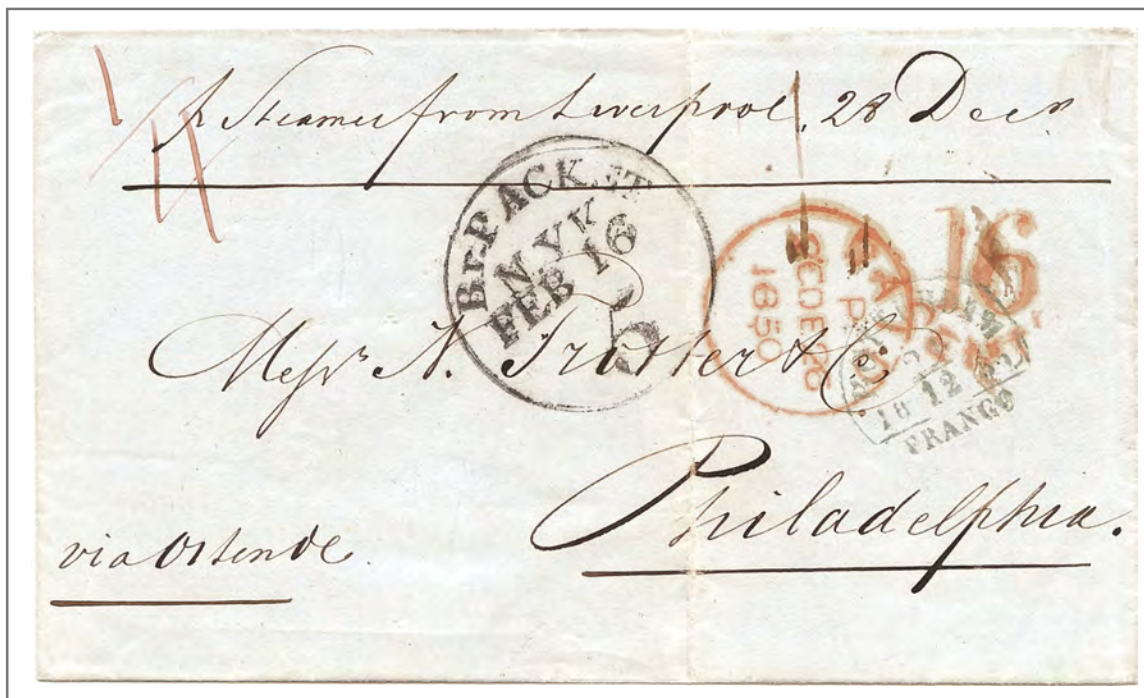 p Steamer from Liverpool, 28 Decr
Br. PACKET
N. YK
FEB 16
5
PAID
26DE26
1850
16
CENTS
AMSTERDAM
18 12 50
FRANCO
Messrs N. Trotter & Co
Philadelphia.
via Ostende.